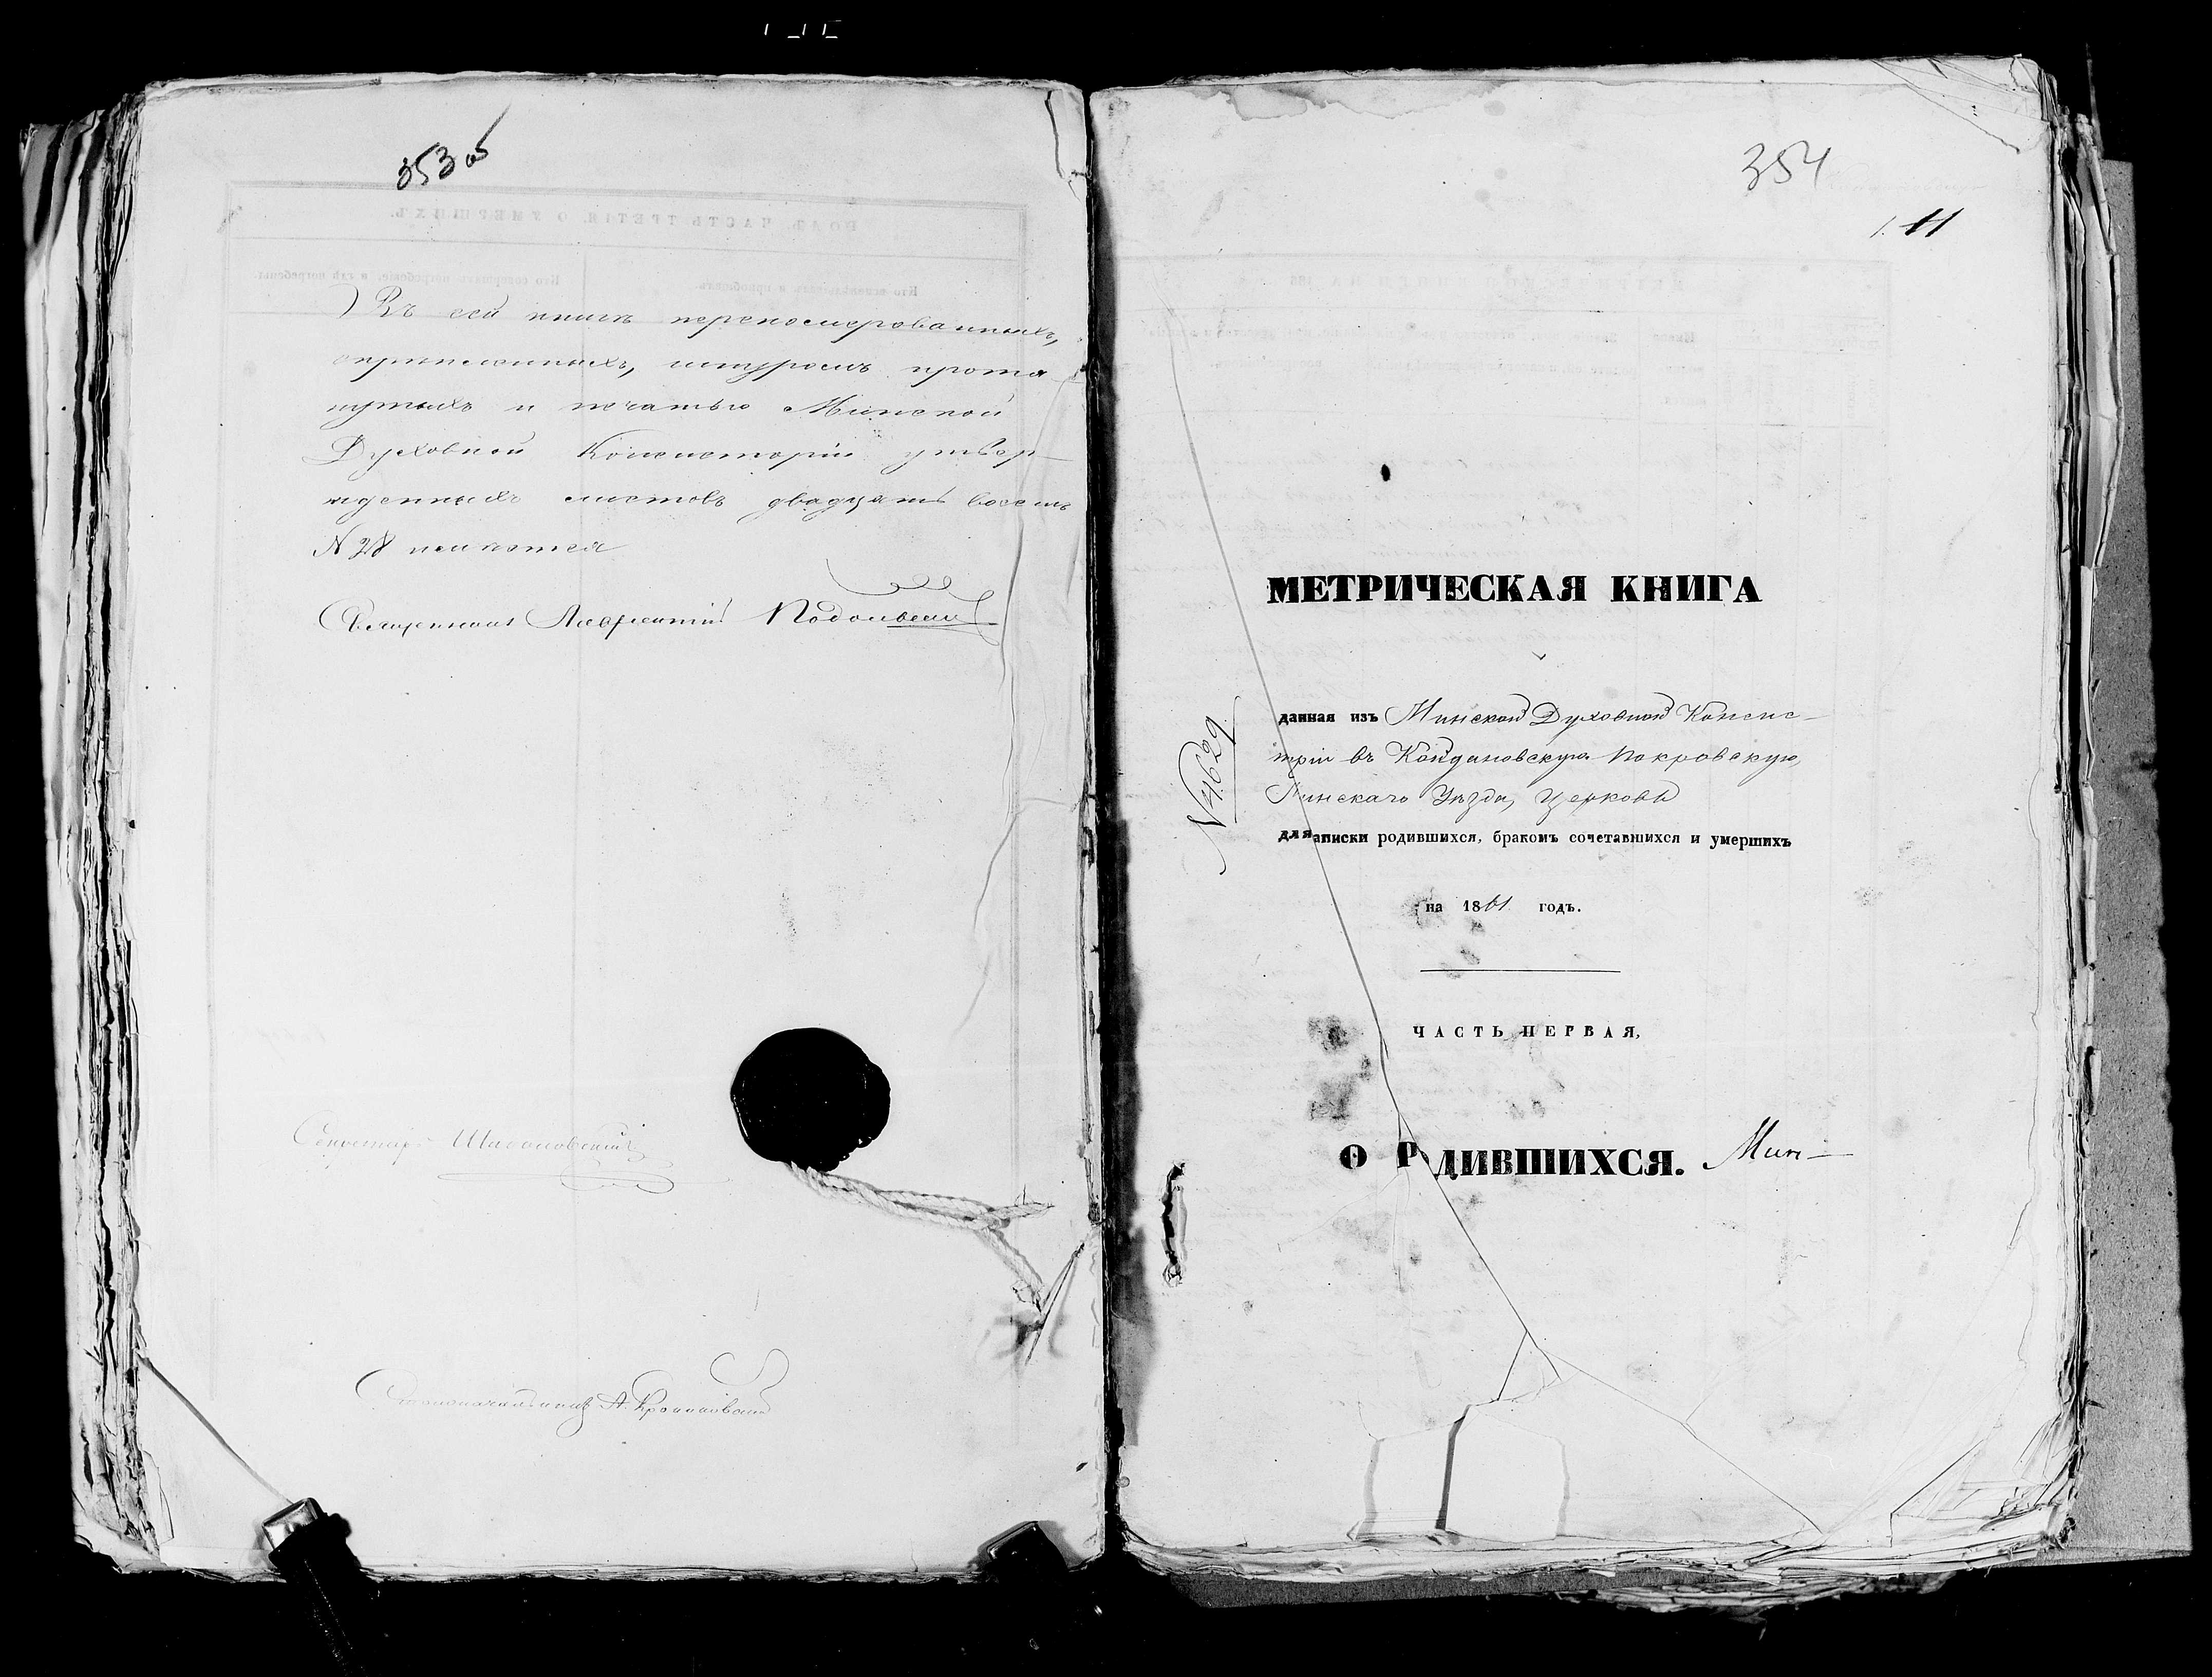 353 об
Въ сей книгѣ переномерованныхъ,
скрѣпленныхъ, шнуромъ протя
нутыхъ и печатью Минской
Духовной Консисторіи утвер
жденныхъ листовъ двадцать восемь
№ 28 имѣется
Священникъ Лаврентій
Секретарь
Столоначальникъ А.
354
МЕТРИЧЕСКАЯ КНИГА
№ 4629
данная изъ Минской Духовной Консис-
тріи въ Койдановскую Покровскую,
Минскаго Уѣзда, Церковь
для записки родившихся, бракомъ сочетавшихся и умершихъ
на 1861 годъ.
ЧАСТЬ ПЕРВАЯ,
О РОДИВШИХСЯ. Мин-